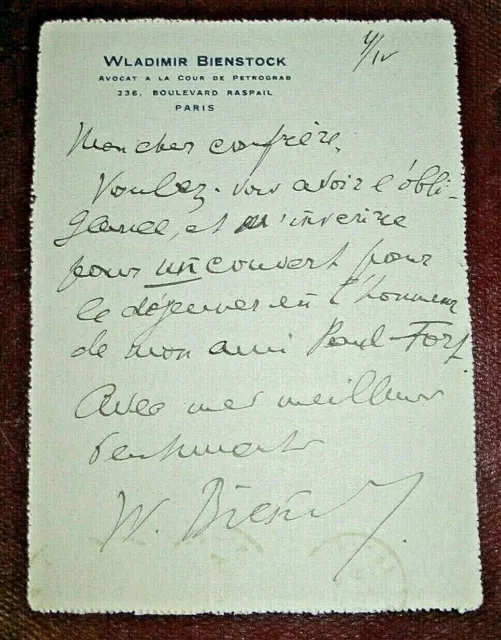 WLADIMIR BIENSTOCK
AVOCAT A LA COUR DE PETROGRAD
236, BOULEVARD RASPAIL
PARIS
4/IV
Mon cher confrère,
Voulez-vous avoir l'obli-
geance, et m'inscrire
pour un couvert pour
le déjeuner en l'honneur
de mon ami Paul Fort.
Avec mes meilleurs
sentiments
W. Bienstock